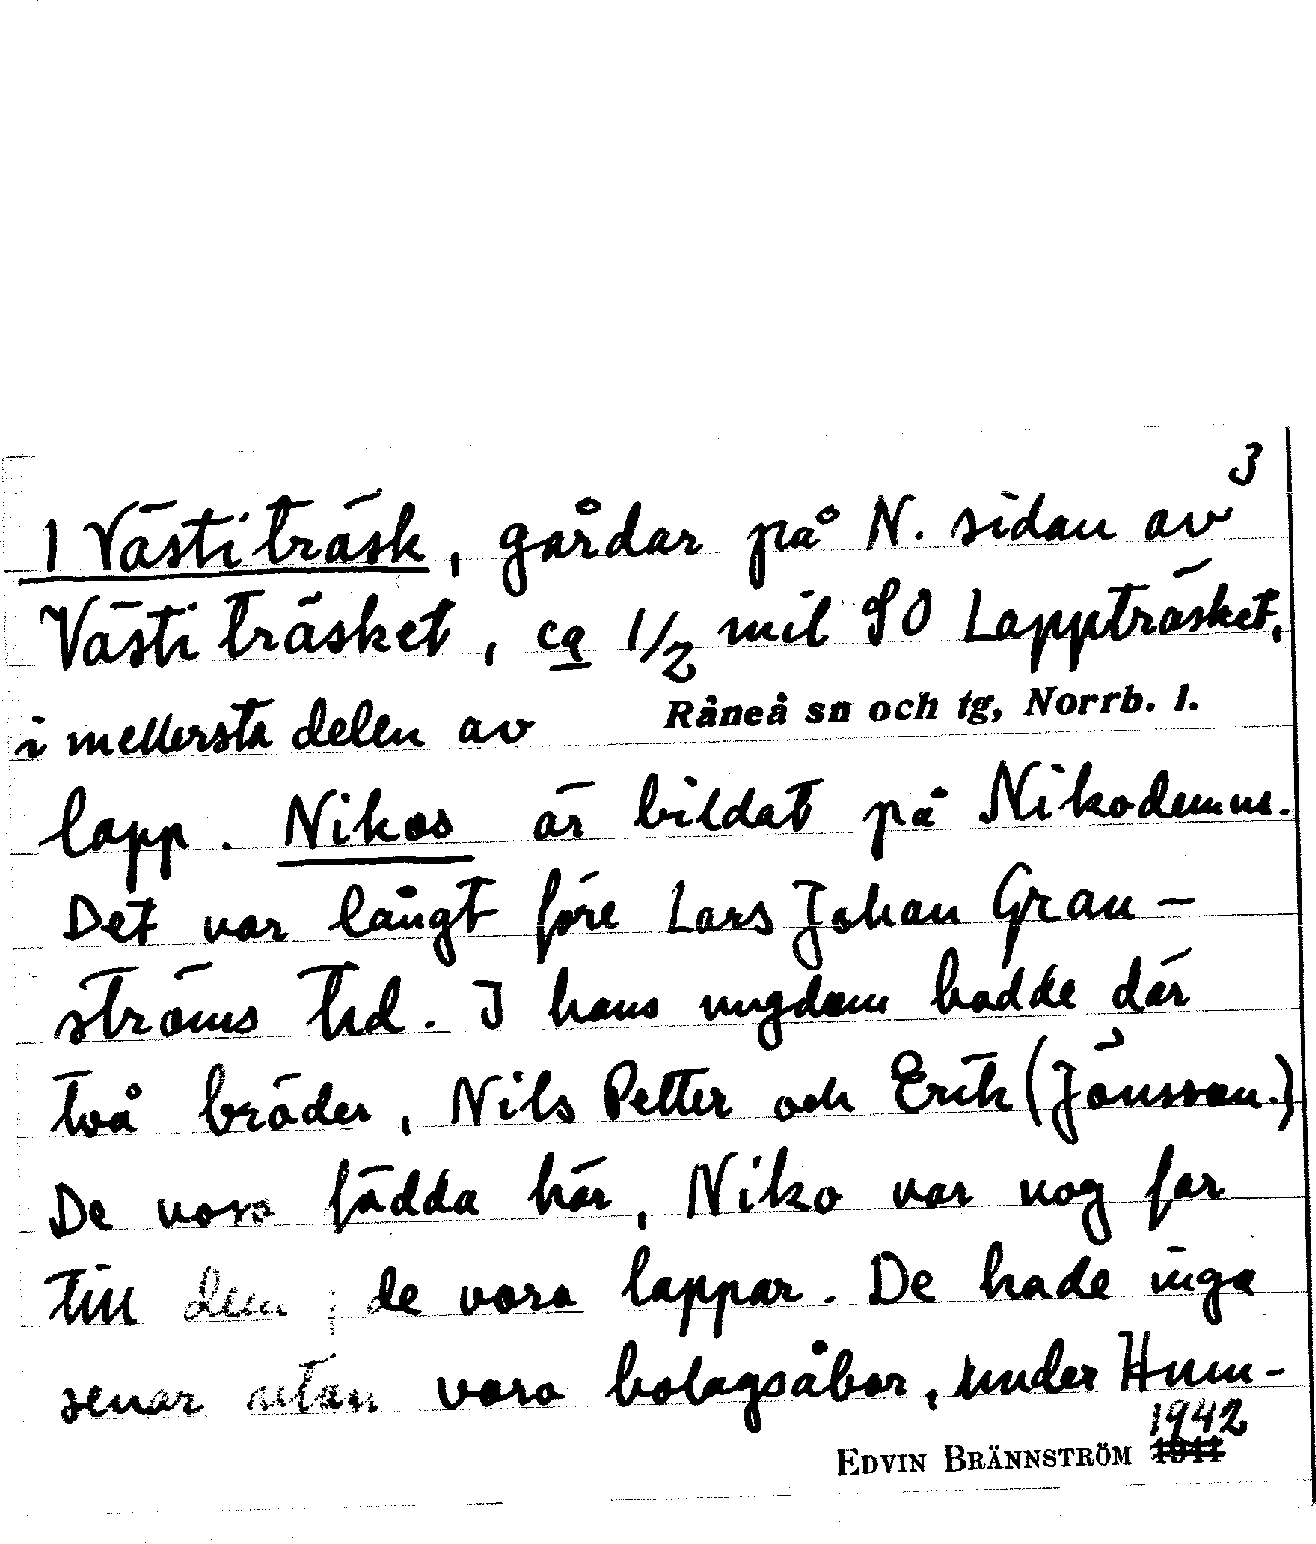 3
1 Västiträsk, gårdar på N. sidan av
Västiträsket, ca 1/2 mil SO Lappträsket,
i mellersta delen av Råneå sn och tg, Norrb. l.
lapp. Nikos är bildat på Nikodemus.
Det var långt före Lars Johan Gran-
ströms tid. I hans ungdom bodde där
två bröder, Nils Petter och Erik (Jönsson.)
De voro födda här, Niko var nog far
till dem; de voro lappar. De hade inga
renar utan voro bolagsåbor, under Hum-
EDVIN BRÄNNSTRÖM 1942
1941